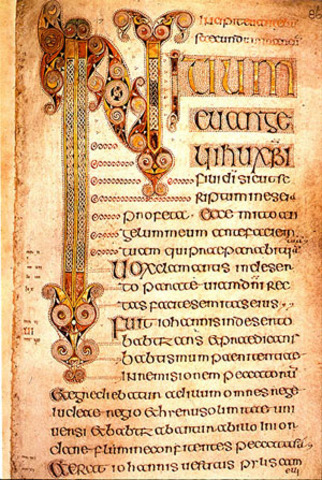 86
Incipit euangelii
secundum
INITIUM
euange
lii ihu xpi
fili di sicut sc
riptum in esei
profeta · Ecce mitto an
gelum meum ante faciem
tuam qui praeparabit ui
Uox clamantis in deser
to parate uiam dni rec
tas facite semitas eius
Fuit iohannis in deserto
babtizans et praedicans
babtismum paenitentiae
in remisionem peccatoru
Et egrediebatur ad illum omnes
iudeae regio et hierusolimitae uni
uersi et babtizabantur ab illo in ior
dane flumine confitentes peccata
Et erat iohannis uestitus pylis cam
eli